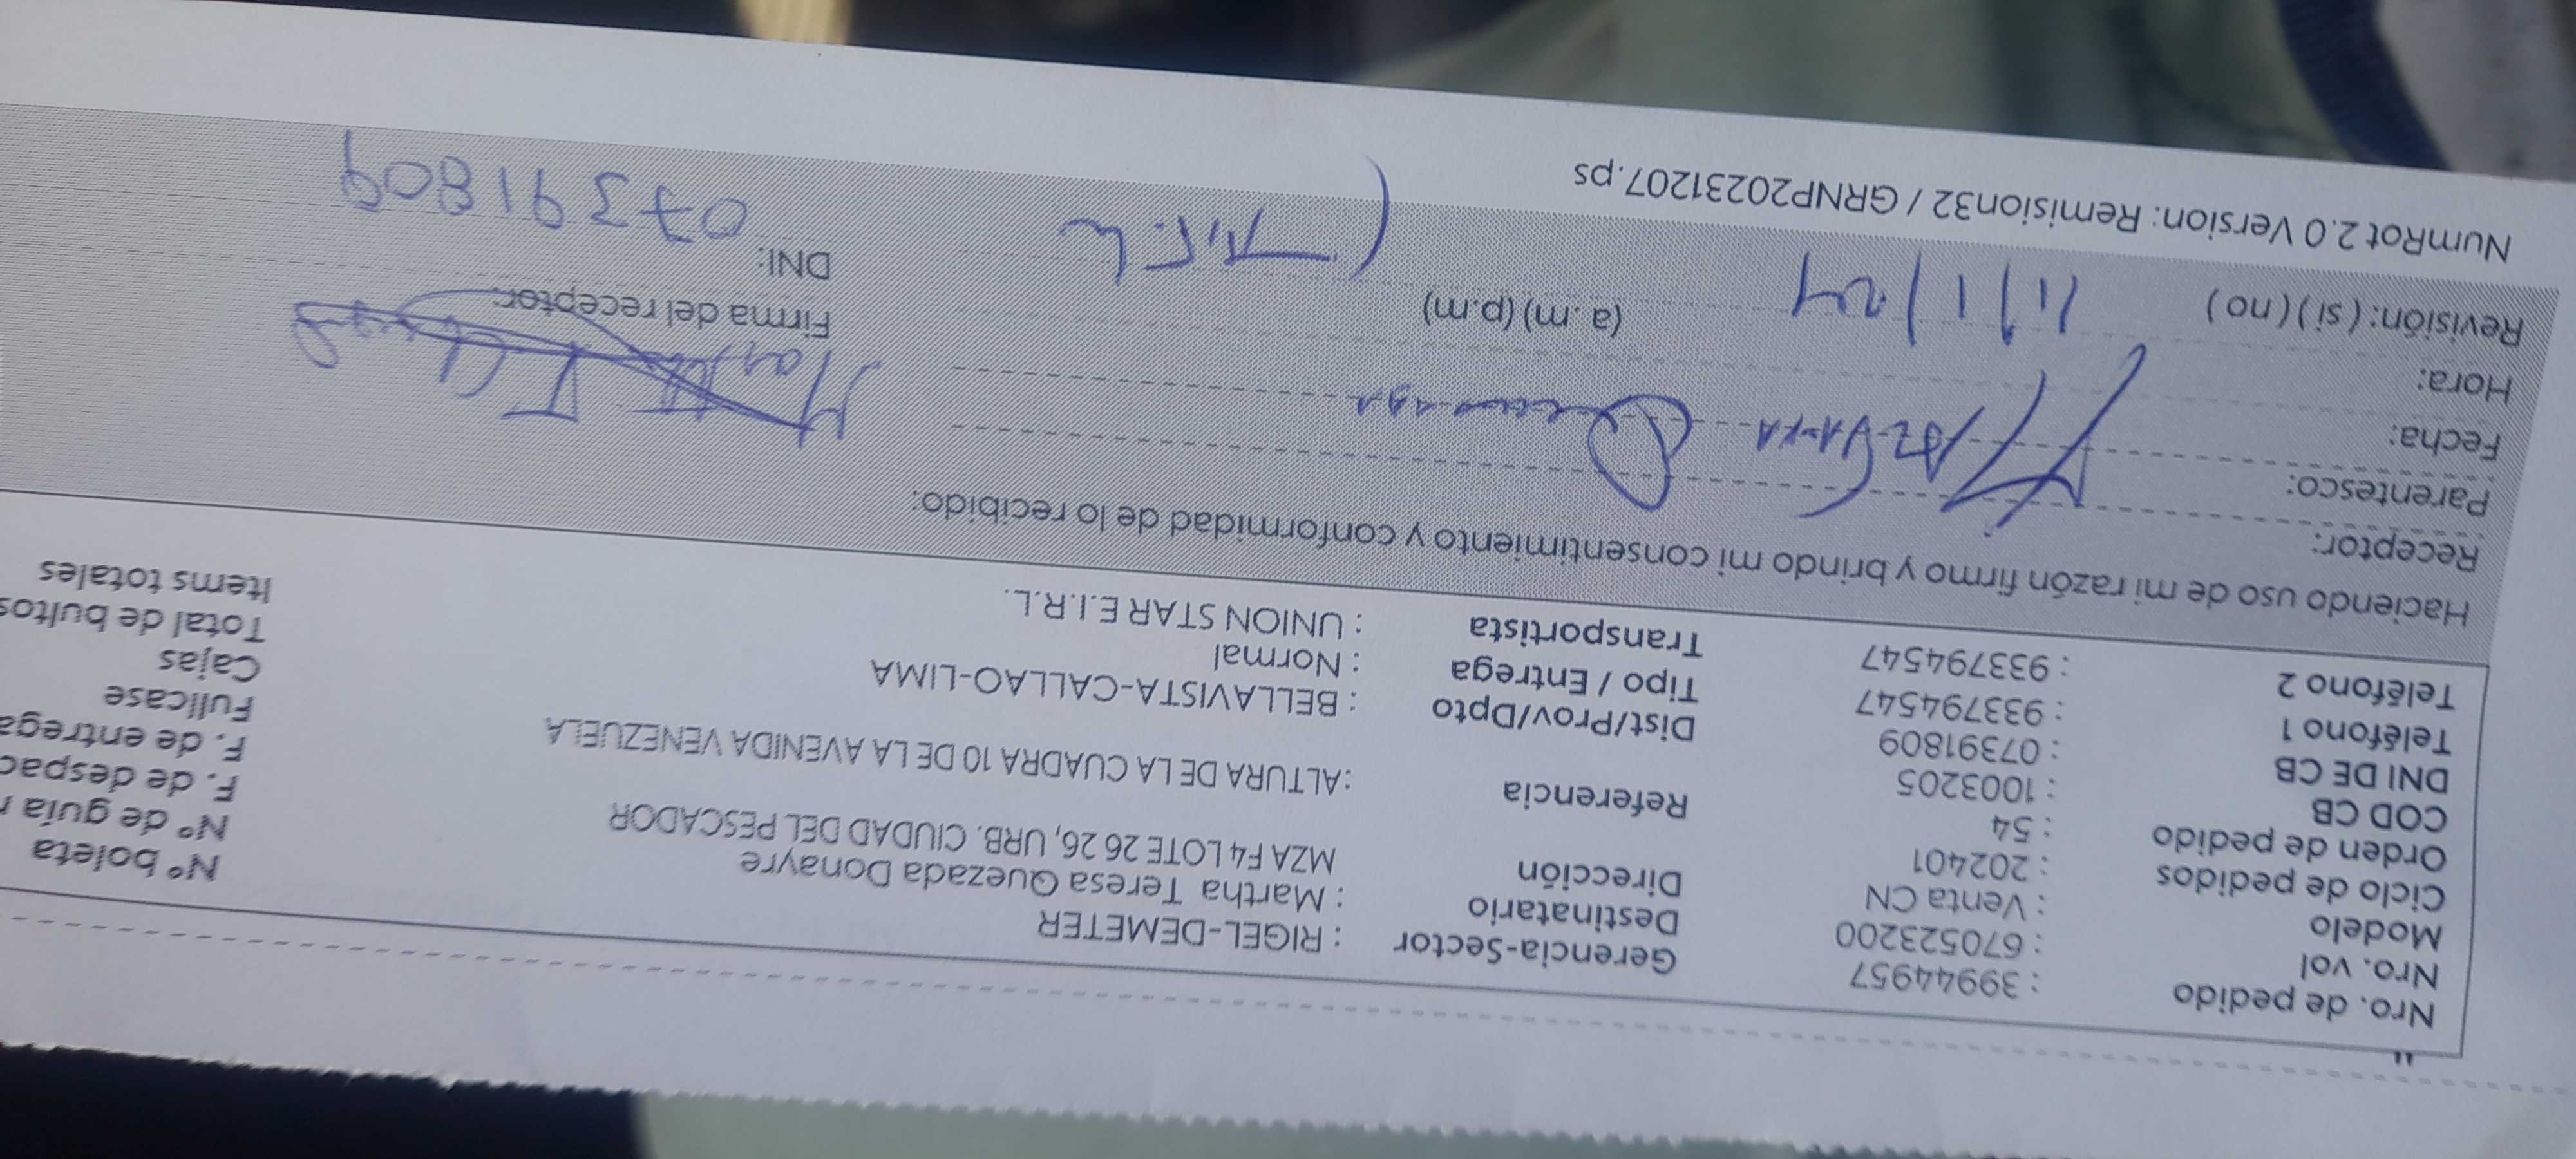 Nro. de pedido : 39944957 Gerencia-Sector : RIGEL-DEMETER Nº boleta
Nro. vol : 670523200 Destinatario : Martha Teresa Quezada Donayre Nº de guía
Modelo : Venta CN Dirección MZA F4 LOTE 26 26, URB. CIUDAD DEL PESCADOR F. de despac
Ciclo de pedidos : 202401 F. de entrega
Orden de pedido : 54 Referencia : ALTURA DE LA CUADRA 10 DE LA AVENIDA VENEZUELA Fullcase
COD CB : 1003205 Cajas
DNI DE CB : 07391809 Dist/Prov/Dpto : BELLAVISTA-CALLAO-LIMA Total de bultos
Teléfono 1 : 933794547 Tipo / Entrega : Normal Items totales
Teléfono 2 : 933794547 Transportista : UNION STAR E.I.R.L.
Haciendo uso de mi razón firmo y brindo mi consentimiento y conformidad de lo recibido:
Receptor:
Parentesco:
Fecha: 11/1/24
Hora: (a.m) (p.m) Firma del receptor:
Revisión: ( si ) ( no ) DNI: 07391809
NumRot 2.0 Version: Remision32 / GRNP20231207.ps